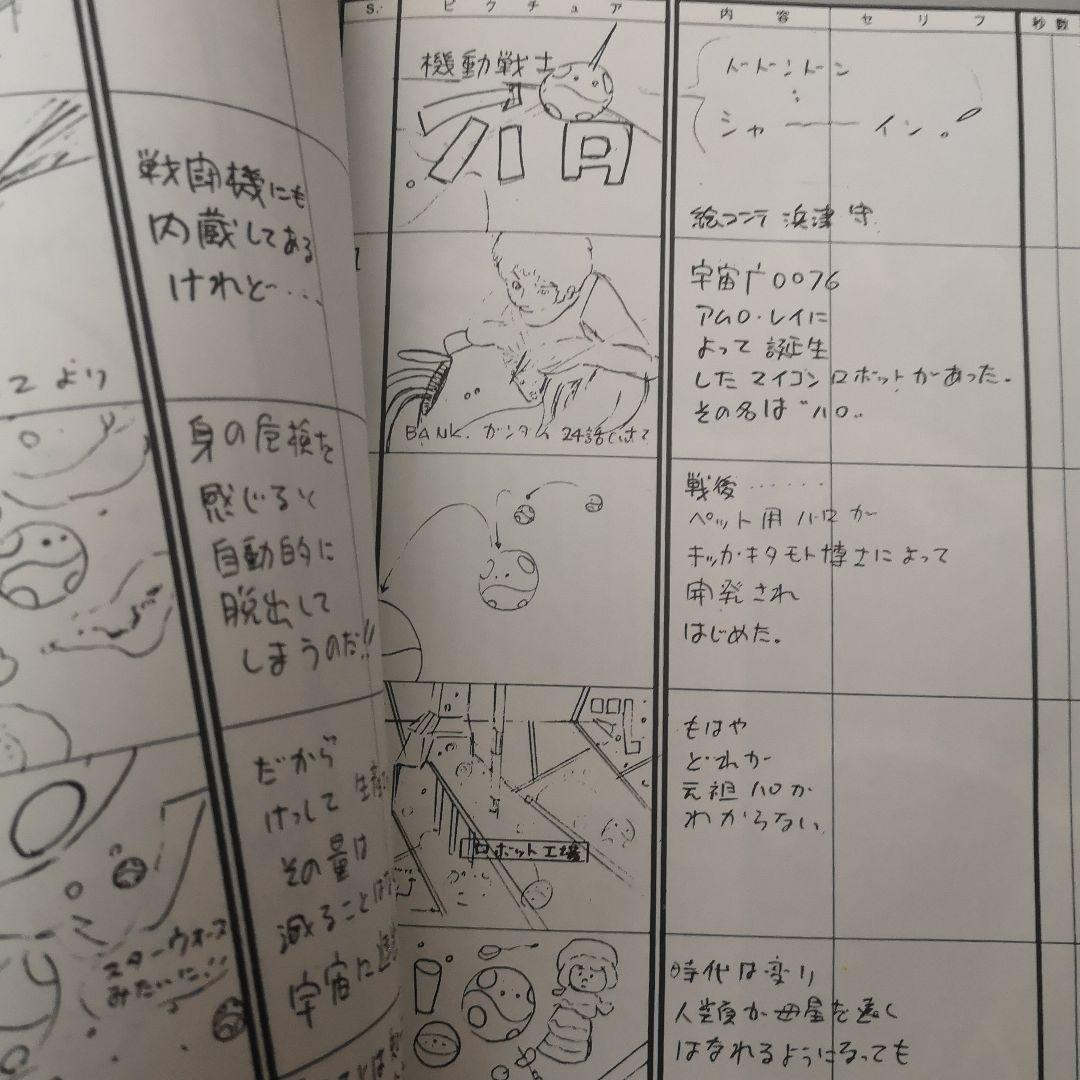 戦闘機にも
内蔵してある
けれど・・・
より
身の危検を
感じると
自動的に
脱出して
しまうのだ!!
だから
けっして
その量は
減ることは
宇宙に
スターウォーズ
みたいに!!
S. ピクチュア 内容 セリフ 秒数
機動戦士
ハロ
ドドンドン
シャーーーイン。
絵コンテ 浜津 守
1
宇宙广0076
アムロ・レイに
よって誕生
したマイコンロボットがあった。
その名は“ハロ”
BANK. ガンダム 24話
戦後・・・・・・
ペット用ハロが
キッカ・キタモト博士によって
開発され
はじめた。
もはや
どれが
元祖ハロか
わからない
ロボット工場
時代は変り
人類が母星を遠く
はなれるようになっても